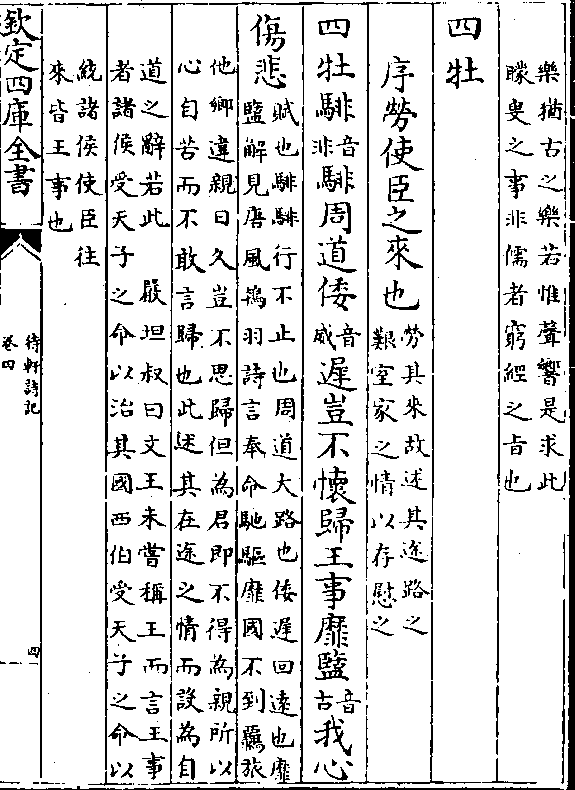 樂猶古之樂若惟聲響是求此
矇叟之事非儒者窮經之旨也
四牡
序勞使臣之來也
勞其來故述其途路之
艱室家之情以存慰之
四牡騑騑周道倭遲豈不懷歸王事靡盬我心
音非
音威
音古
傷悲
賦也騑騑行不止也周道大路也倭遲回遠也靡
盬解見唐風鴇羽詩言奉命馳驅靡國不到羈旅
他鄉違親日久豈不思歸但為君即不得為親所以
心自苦而不敢言歸也此述其在途之情而設為自
道之辭若此　嚴坦叔曰文王未嘗稱王而言王事
者諸侯受天子之命以治其國西伯受天子之命以
統諸侯使臣往
來皆王事也
欽定四庫全書
待軒詩記
卷四
四